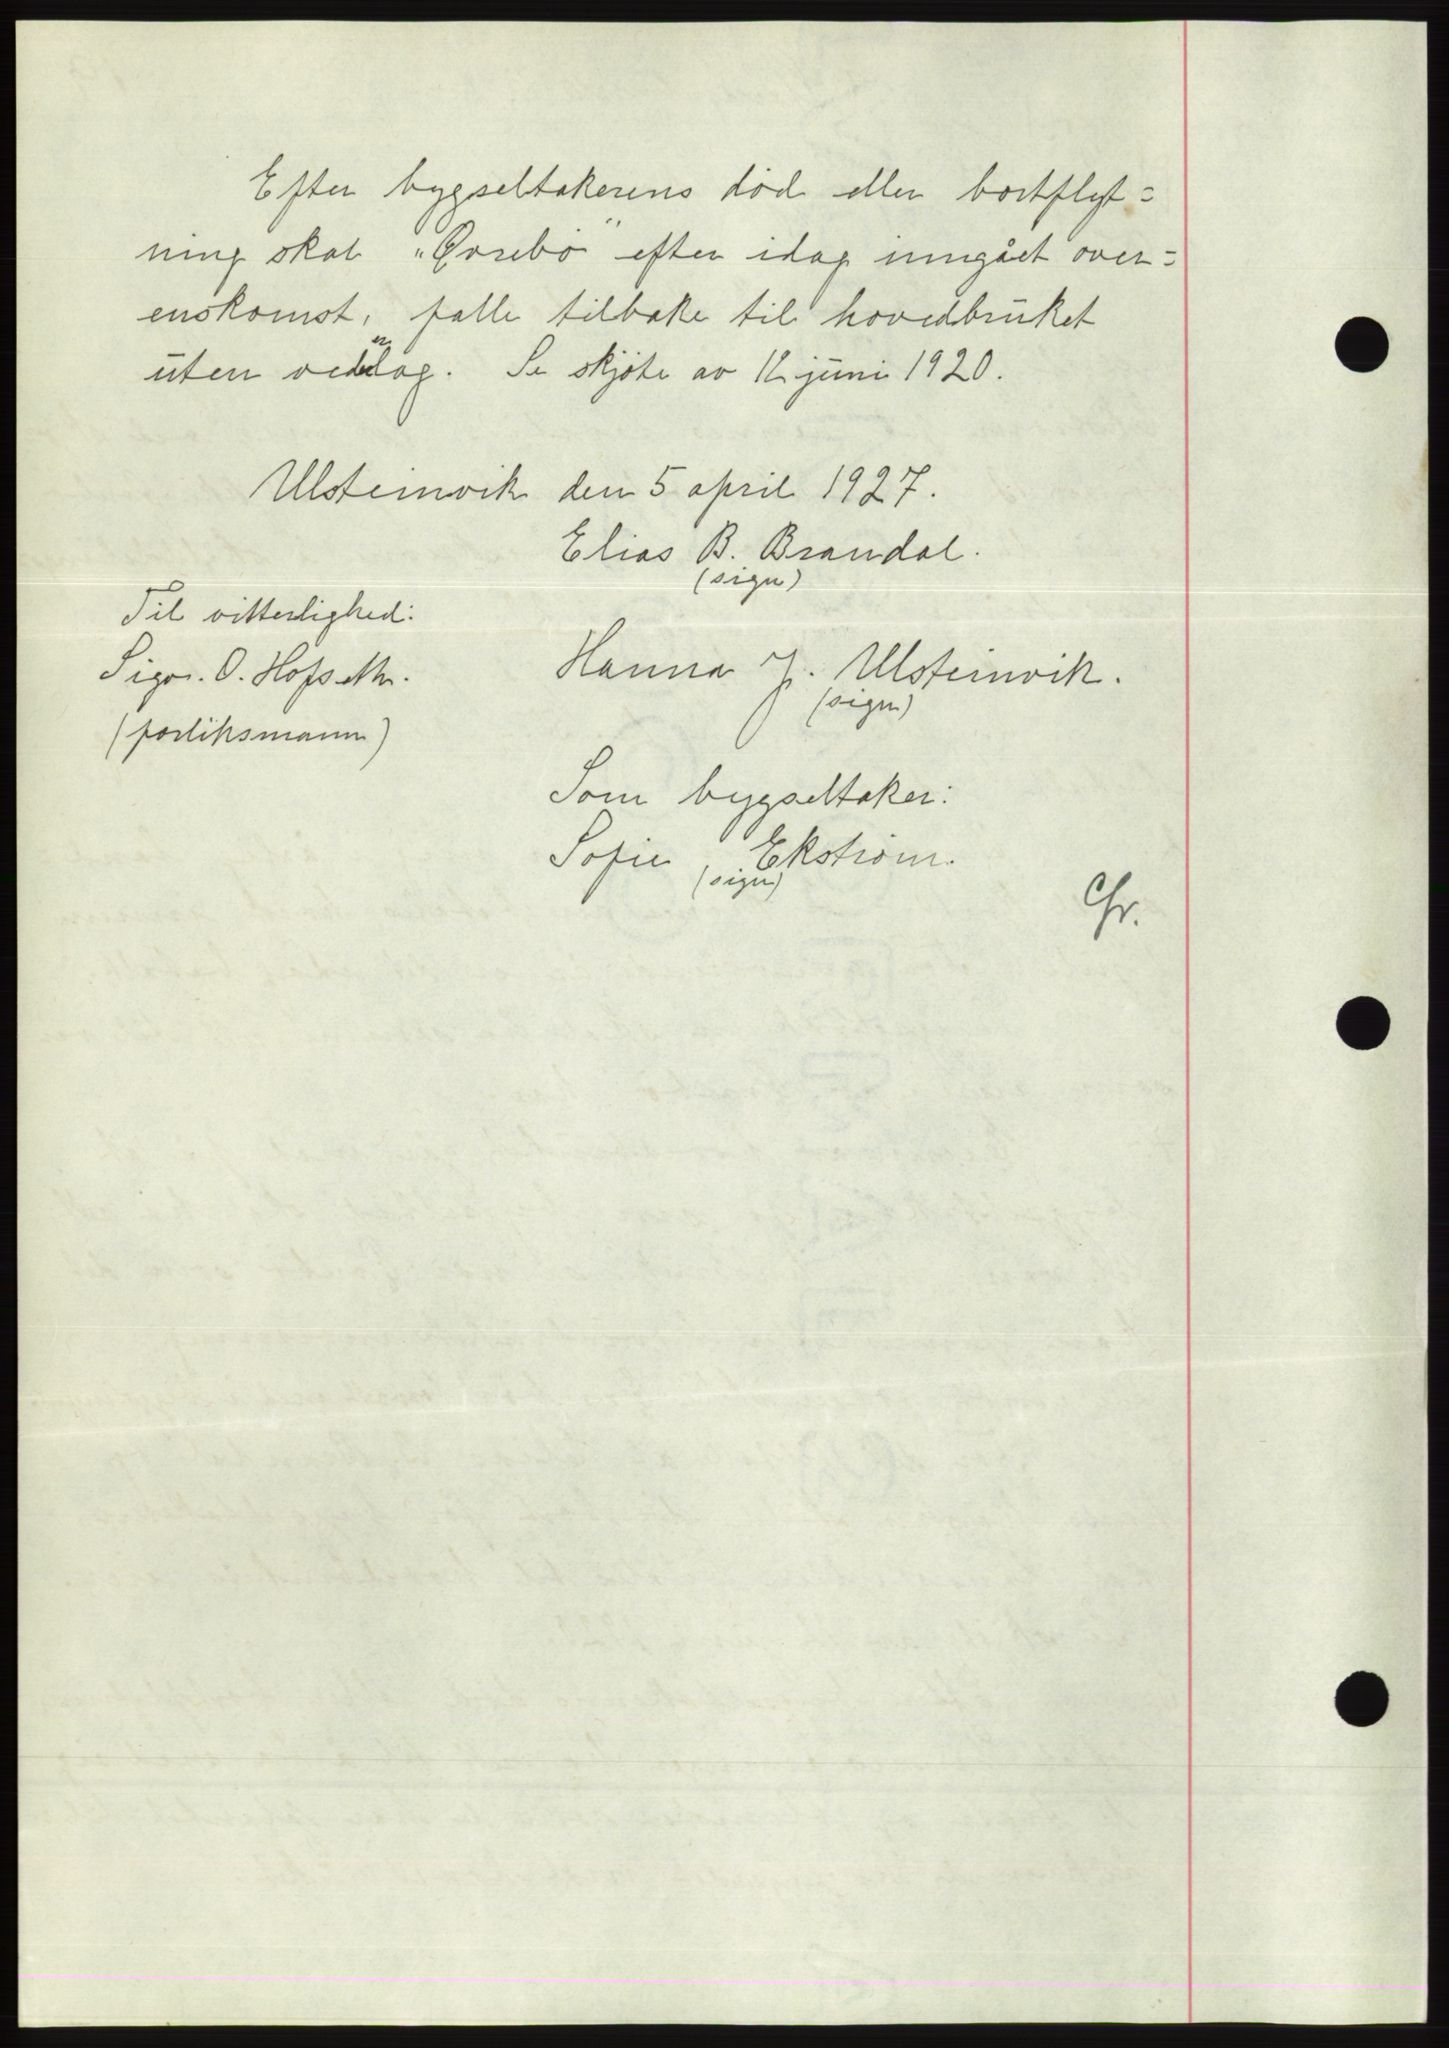 Efter bygseltakerens död eller bortflyt=
ning skal "Qvsebö" efter idag inngået over=
enskomst, falle tilbake til hovedbruket
uten vederlag. Se skjöte av 12 juni 1920.
Ulsteinvik den 5 april 1927.
Elias B. Brandal.
(sign)
Til vitterlighed:
Sigv. O. Hofseth.
(forliksmann)
Hanna J. Ulsteinvik.
(sign)
Som bygseltaker:
Sofie Ekström.
(sign)
Chr.